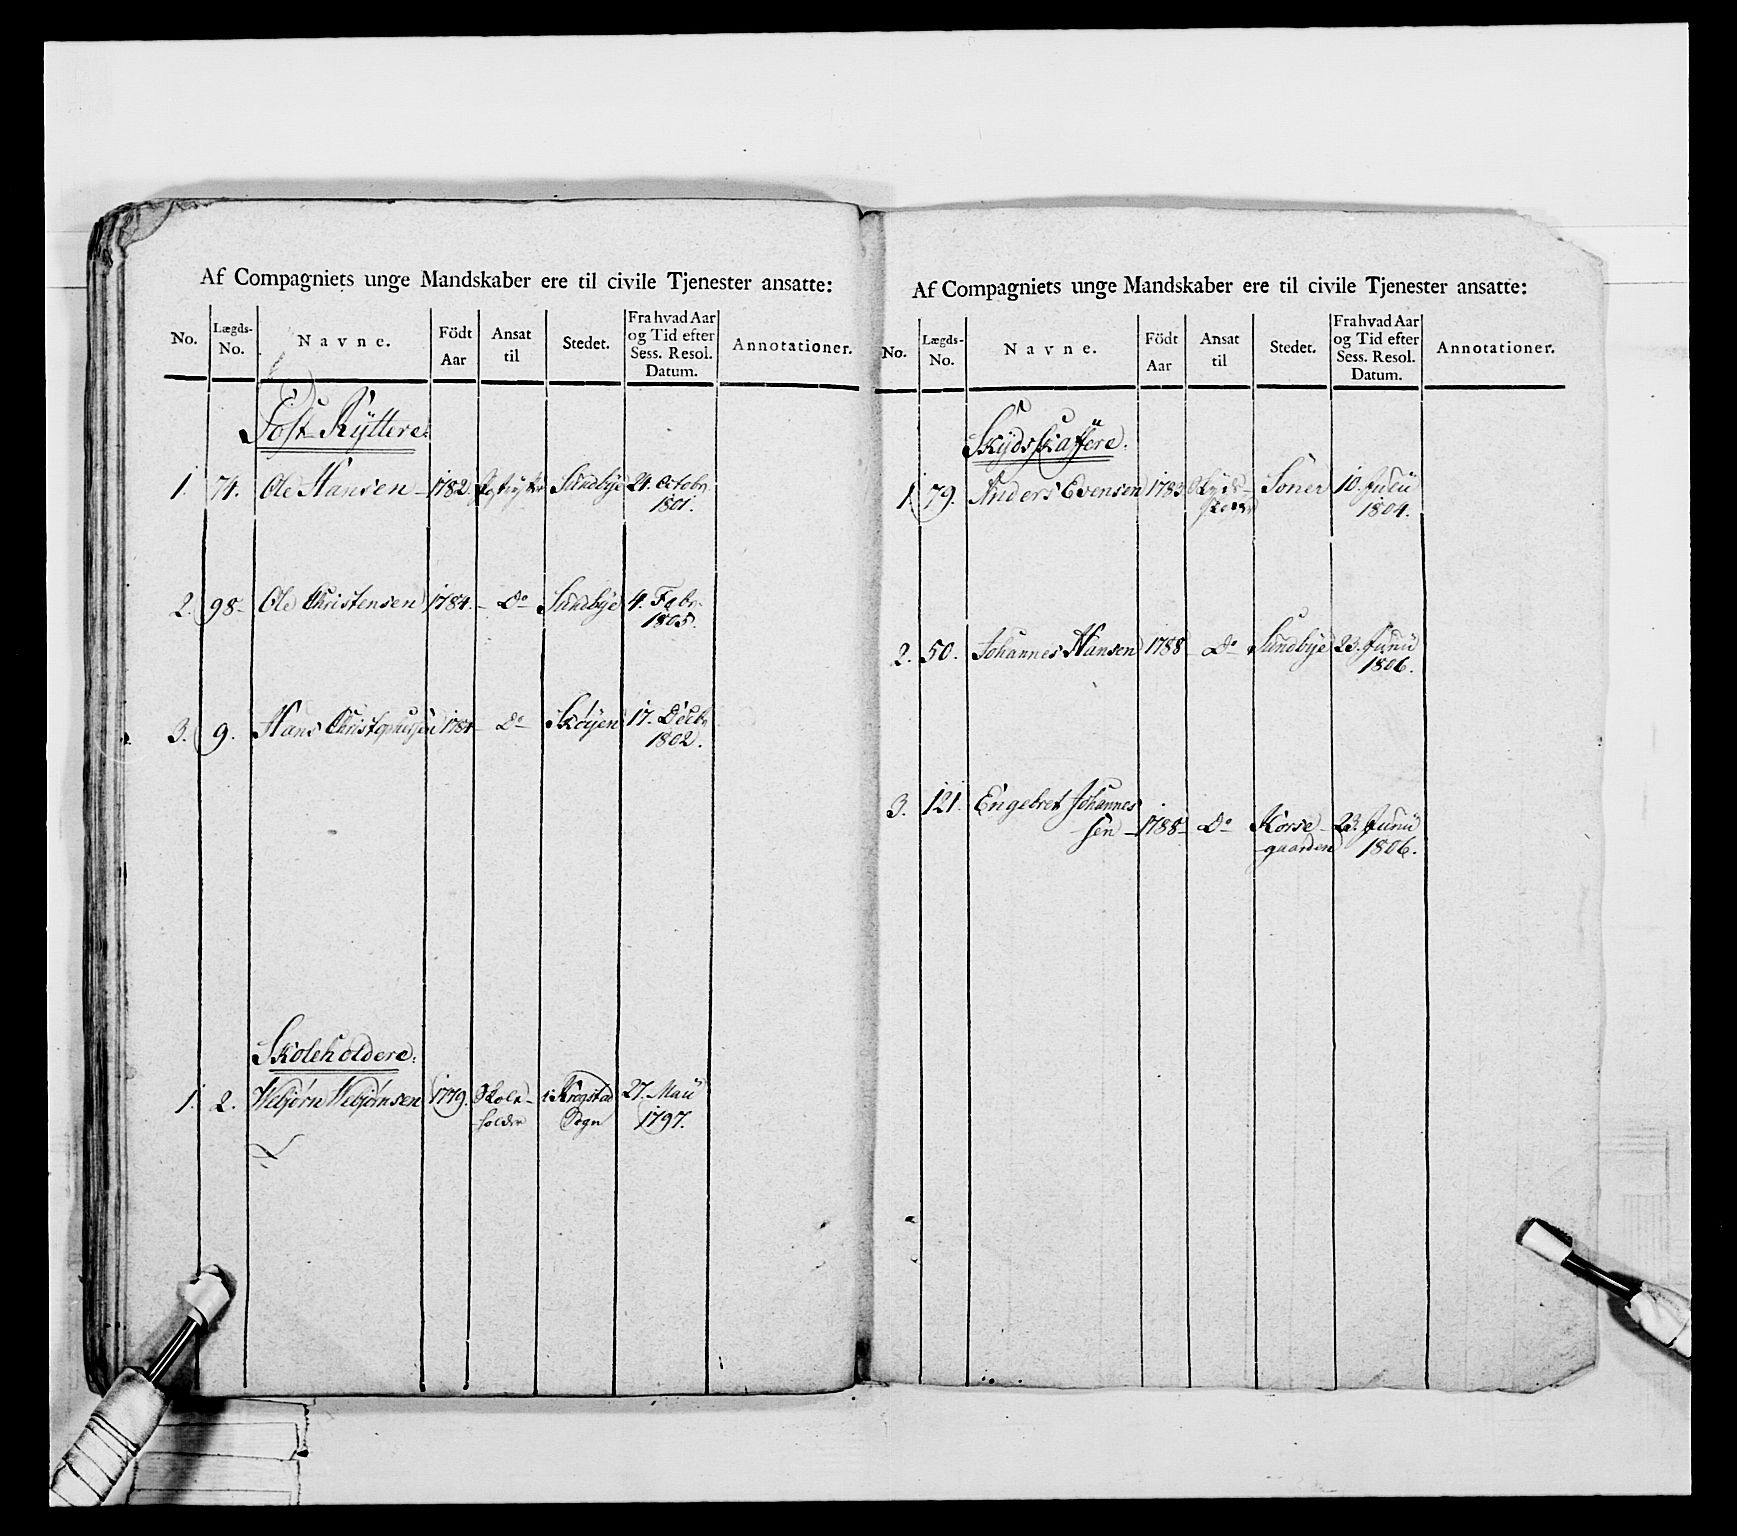 Af Compagniets unge Mandskaber ere til civile Tjenester ansatte:
No. Lægds-No. Navne. Födt Aar Ansat til Stedet. Fra hvad Aar og Tid efter Sess. Resol. Datum. Annotationer.
Post Ryttere:
1. 74. Ole Hansen 1782. Sundbye 24. Octobr.
1801.
2. 98 Ole Christensen 1784. Do Sundbye 4. Febr.
1805.
3. 9. Hans 1784 Do Skøyen 17. Decbr
1802.
Skoleholdere:
1. 2. Webjørn Webjønsen 1779. Skole- i Krogstad 27. Maii
holder Sogn 1797.
Af Compagniets unge Mandskaber ere til civile Tjenester ansatte:
No. Lægds-No. Navne. Födt Aar Ansat til Stedet. Fra hvad Aar og Tid efter Sess. Resol. Datum. Annotationer.
Skydsskaffere:
1. 79. Anders Evensen 1783 Skyds- Soner 10.
1804.
2. 50. Johannes Hansen 1788 Do Sundbye 23. Junii
1806.
3. 121. Engebret Johannes
sen 1788 Do Korse 23. Junii
gaarden 1806.